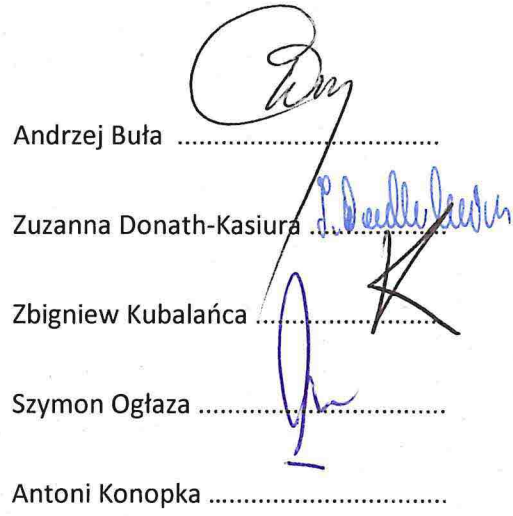 Andrzej Buła ......................................
Zuzanna Donath-Kasiura ....................
Zbigniew Kubalańca ...........................
Szymon Ogłaza ...................................
Antoni Konopka .................................